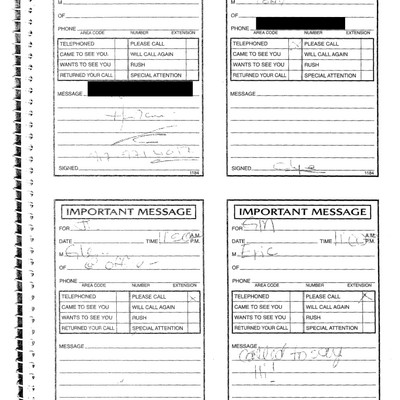 M
OF
PHONE
AREA CODE NUMBER EXTENSION
TELEPHONED PLEASE CALL
CAME TO SEE YOU WILL CALL AGAIN
WANTS TO SEE YOU RUSH
RETURNED YOUR CALL SPECIAL ATTENTION
MESSAGE
SIGNED
1184
M
OF
PHONE
AREA CODE NUMBER EXTENSION
TELEPHONED X PLEASE CALL
CAME TO SEE YOU WILL CALL AGAIN
WANTS TO SEE YOU RUSH
RETURNED YOUR CALL SPECIAL ATTENTION
MESSAGE
SIGNED
1184
IMPORTANT MESSAGE
FOR J.
DATE TIME A.M. P.M.
M
OF
PHONE
AREA CODE NUMBER EXTENSION
TELEPHONED PLEASE CALL X
CAME TO SEE YOU WILL CALL AGAIN
WANTS TO SEE YOU RUSH
RETURNED YOUR CALL SPECIAL ATTENTION
MESSAGE
IMPORTANT MESSAGE
FOR GM
DATE TIME A.M. P.M.
M Eric
OF
PHONE
AREA CODE NUMBER EXTENSION
TELEPHONED PLEASE CALL X
CAME TO SEE YOU WILL CALL AGAIN
WANTS TO SEE YOU RUSH
RETURNED YOUR CALL SPECIAL ATTENTION
MESSAGE
called to say
Hi!